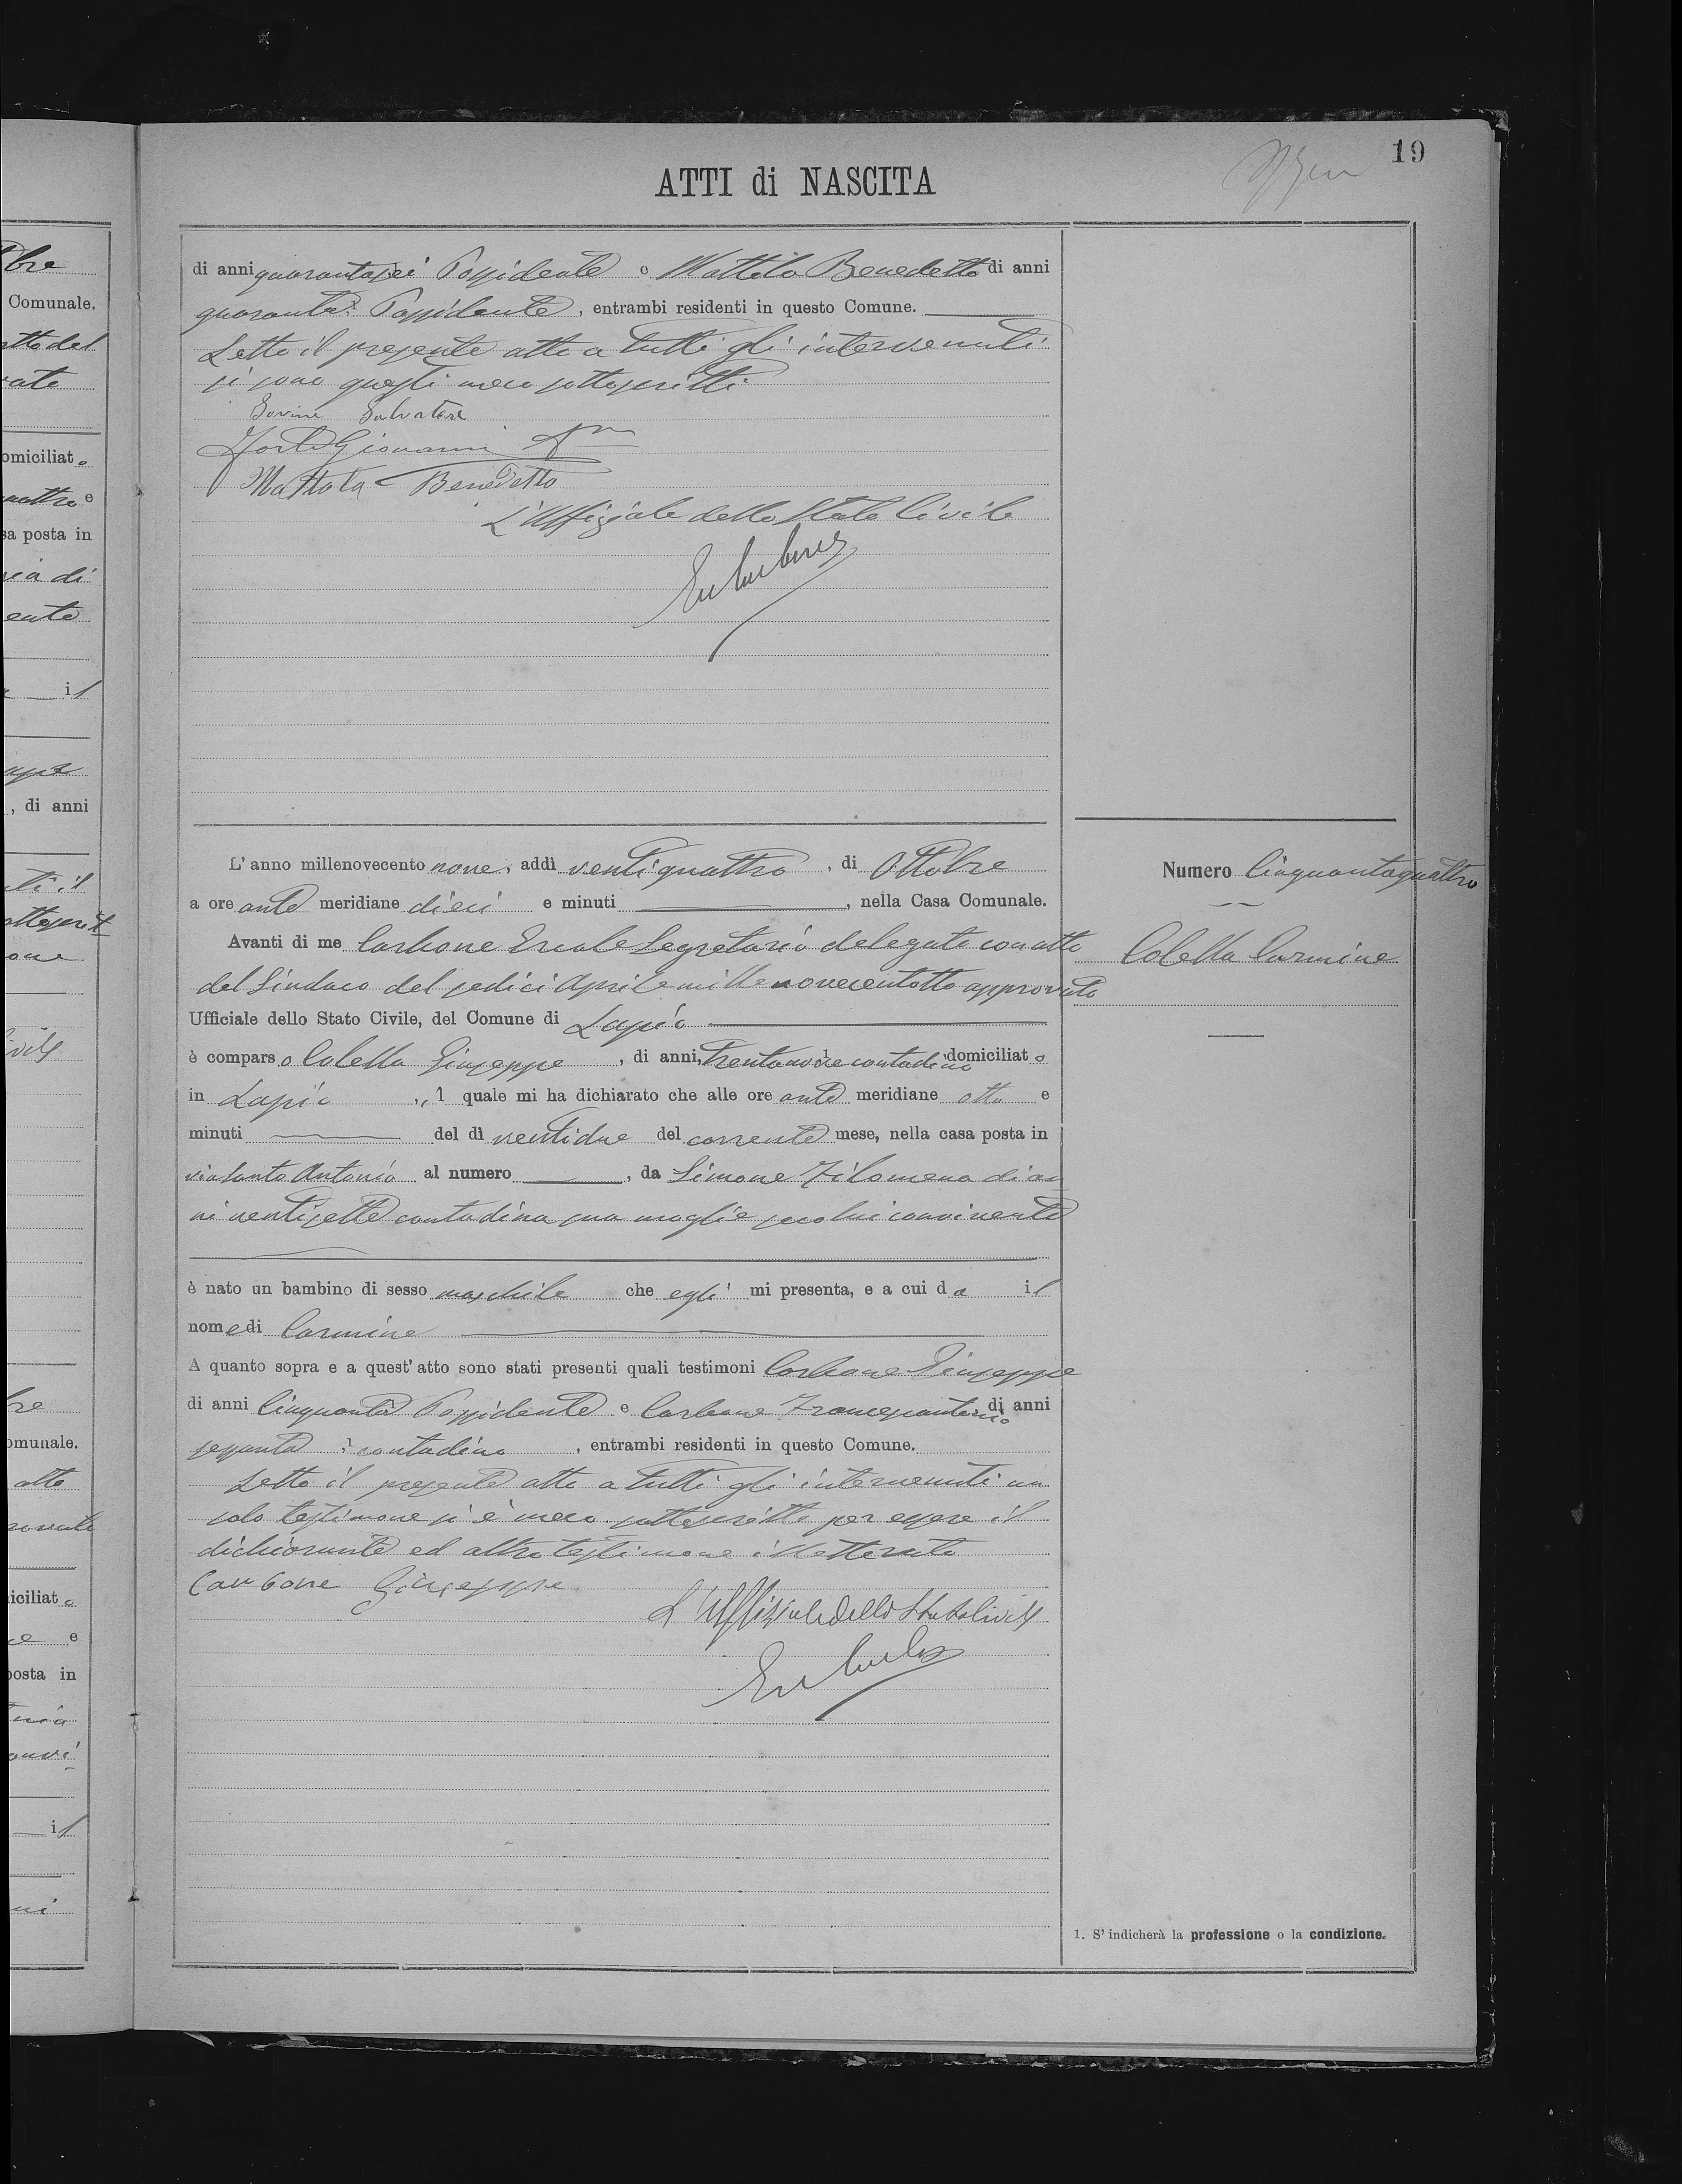 19
ATTI di NASCITA
di anni quarantasei Possidente e Mattola Benedetto di anni
quaranta Possidente, entrambi residenti in questo Comune.
Letto il presente atto a tutti gli intervenuti
si sono questi meco sottoscritti
Iovine Salvatore
Forte Giovanni
Mattola Benedetto
L'Uffiziale dello Stato Civile
L'anno millenovecento nove, addì ventiquattro, di Ottobre
a ore ante meridiane dieci e minuti, nella Casa Comunale.
Avanti di me Carbone Ercole Segretario delegato con atto
del Sindaco del sedici Aprile millenovecentotto approvato
Ufficiale dello Stato Civile, del Comune di Lapio
è comparso Colella Giuseppe, di anni, trentanove contadino domiciliato
in Lapio, il quale mi ha dichiarato che alle ore ante meridiane otto e
minuti del dì ventidue del corrente mese, nella casa posta in
via Santo Antonio al numero, da Simone Filomena di an
ni ventisette contadina sua moglie seco lui convivente
è nato un bambino di sesso maschile che egli mi presenta, e a cui da il
nome di Carmine
A quanto sopra e a quest'atto sono stati presenti quali testimoni Carbone Giuseppe
di anni cinquanta Possidente e Carbone Francescantonio di anni
sessanta, 1 contadino, entrambi residenti in questo Comune.
Letto il presente atto a tutti gli intervenuti un
solo testimone si è meco sottoscritto per essere il
dichiarante ed altro testimone illetterato
Carbone Giuseppe
L'Uffiziale dello Stato Civile
Numero Cinquantaquattro
Colella Carmine
1. S'indicherà la professione o la condizione.
bre
Comunale.
atto del
omiciliato
sa posta in
il
, di anni
omunale.
posta in
il